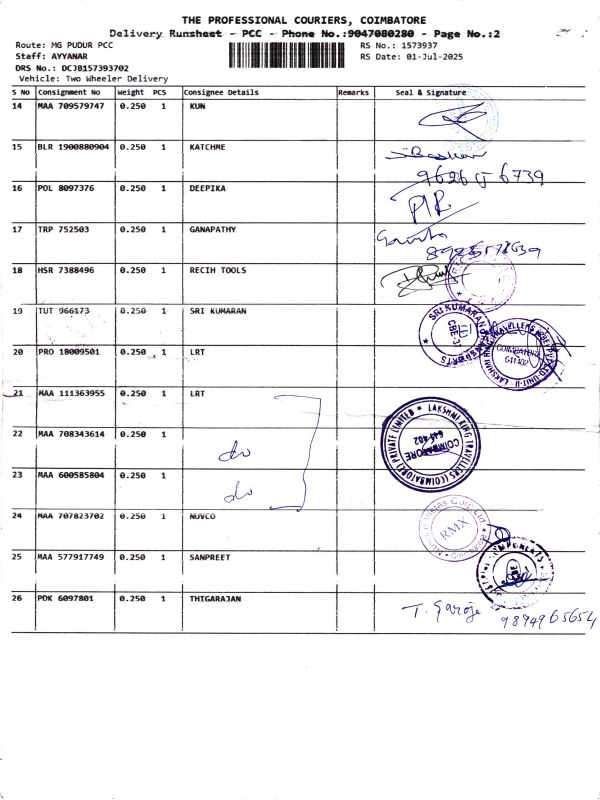 THE PROFESSIONAL COURIERS, COIMBATORE
Delivery Runsheet - PCC - Phone No.:9047080280 - Page No.:2
Route: MG PUDUR PCC
RS No.: 1573937
Staff: AYYANAR
RS Date: 01-Jul-2025
DRS No.: DCJB157393702
Vehicle: Two Wheeler Delivery
S No Consignment No Weight PCS Consignee Details Remarks Seal & Signature
14 MAA 709579747 0.250 1 KUN
15 BLR 1900880904 0.250 1 KATCHME
16 POL 8097376 0.250 1 DEEPIKA
17 TRP 752503 0.250 1 GANAPATHY
18 HSR 7388496 0.250 1 RECIH TOOLS
19 TUT 966173 0.250 1 SRI KUMARAN
SRI KUMARAN
20 PRO 18009501 0.250 1 LRT
COIMBATORE
641402
21 MAA 111363955 0.250 1 LRT
LAKSHMI RING TRAVELLERS (COIMBATORE) PRIVATE LIMITED
COIMBATORE
641 402
22 MAA 708343614 0.250 1
do
23 MAA 600585804 0.250 1
do
24 MAA 707823702 0.250 1 NUVCO
RMX
25 MAA 577917749 0.250 1 SANPREET
26 PDK 6097801 0.250 1 THIGARAJAN
T. Saroja
9894965654